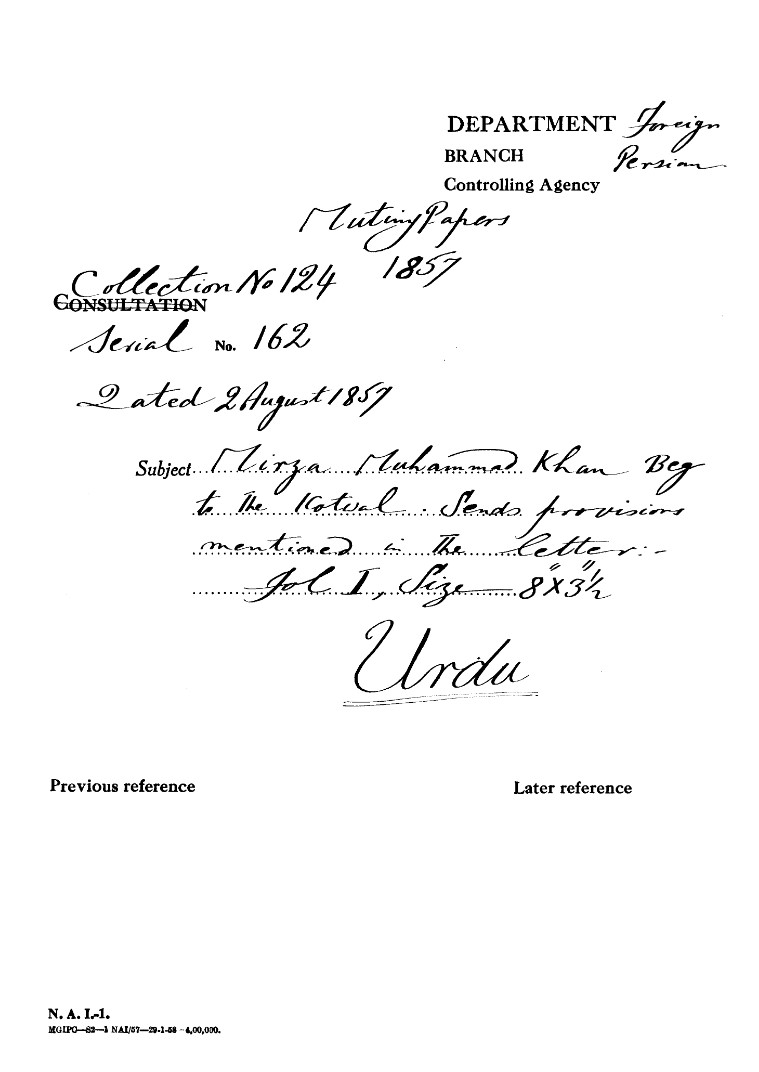 DEPARTMENT Foreign
BRANCH Persian
Controlling Agency
Mutiny Papers
1857
Collection No 124
CONSULTATION
Serial No. 162
Dated 2 August 1857
Subject Mirza Muhammad Khan Beg
to the Kotwal. Sends provisions
mentioned in the letter:-
Fol I, Size 8" X 3½"
Urdu
Previous reference Later reference
N. A. I.-1.
MGIPC—S2—1 NAI/57—29-1-58—4,00,000.